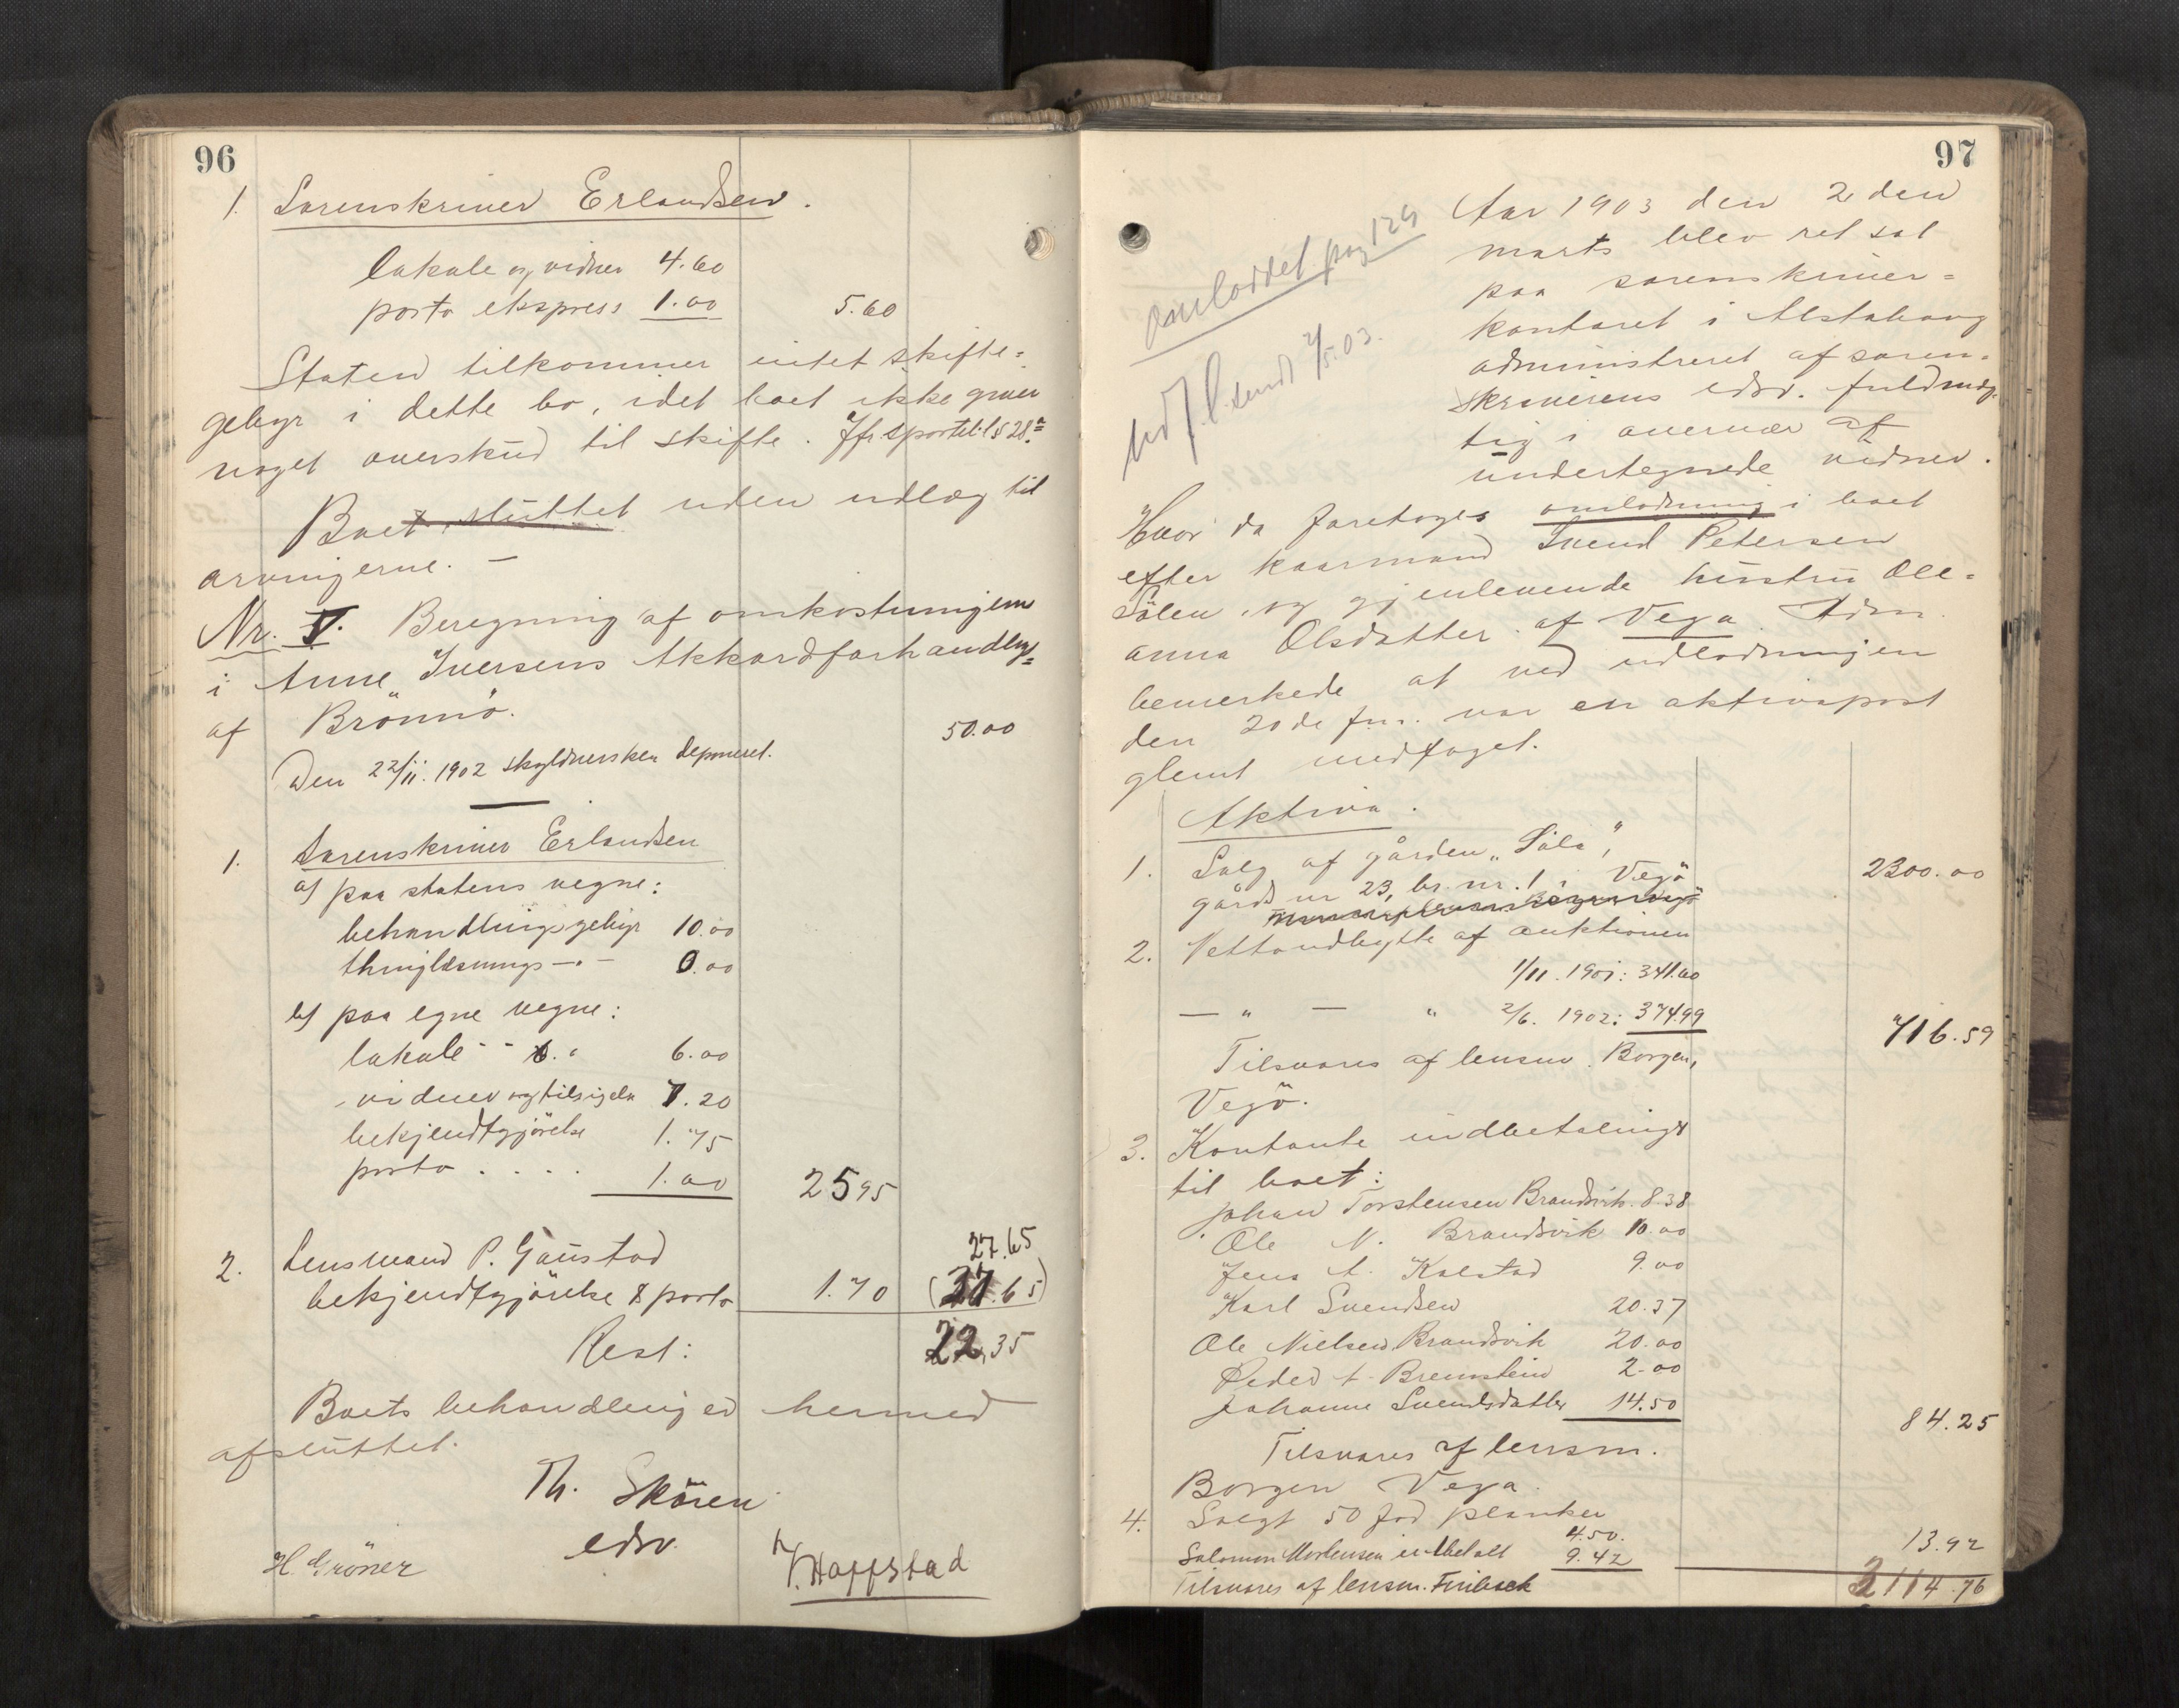 96
1. Sorenskriver Erlandsen.
lokale og vidner 4.60
porto ekspress 1.00 5.60
Staten tilkommer intet skifte=
gebyr i dette bo, idet boet ikke giver
noget overskud til skifte. Jfr. sportell. § 28.
Boet sluttet uden udlæg til
arvingerne. —
Nr. V. Beregning af omkostningerne
i Anne Iversens Akkordforhandling
af Brønnö.
Den 22/11. 1902 skyldnersken deponeret. 50.00
1. Sorenskriver Erlandsen
a) paa statens vegne:
behandlingsgebyr 10.00
thinglæsnings —"— 0.00
b) paa egne vegne:
lokale 6.00
vidner og tilsigeln 7.20
bekjendtgjörelse 1.75
porto . . . . 1.00 25 95
2. Lensmand P. Gaustad 27.65
bekjendtgjörelse & porto 1.70 (27.65)
Rest: 22,35
Boets behandling er hermed
afsluttet.
Th. Skören
edsv.
H. Gröner
J. Hoffstad
97
omloddet pag 129
udf. l. sendt 2/5.03.
Aar 1903 den 2den
marts blev ret sat
paa sorenskriver=
kontoret i Alstahaug
administreret af soren=
skriverens edsv. fuldmæg=
tig i overvær af
undertegnede vidner.
Hvor da foretoges omlodning i boet
efter kaarmand Svend Petersen
Sölen og gjenlevende hustru Ole=
anna Olsdatter af Vega. Adm.
bemerkede at ved udlodningen
den 20de f.m. var en aktivapost
glemt medtaget.
Aktiva.
1. Salg af gården "Söla",
gårds nr 23, br. nr. 1 i Vegö 2300.00
2. Nettoudbytte af auktionen
1/11. 1901: 341.60
— " — " 2/6. 1902: 374.99 716.59
Tilsvares af lensm. Borgen,
Vegö.
3. Kontante indbetalinger
til boet:
Johan Torstensen Brandsvik. 8.38
Ole N. Brandsvik 10.00
Jens A. Kalstad 9.00
Karl Svendsen 20.37
Ole Nielsen Brandsvik 20.00
Peder A. Bremstein 2.00
Johanne Svendsdatter 14.50 84.25
Tilsvares af lensm.
Borgen Vega.
4. Solgt 50 fod planker 4.50.
Salomon Mortensen indbetalt 9.42 13.92
Tilsvares af lensm. 3114.76